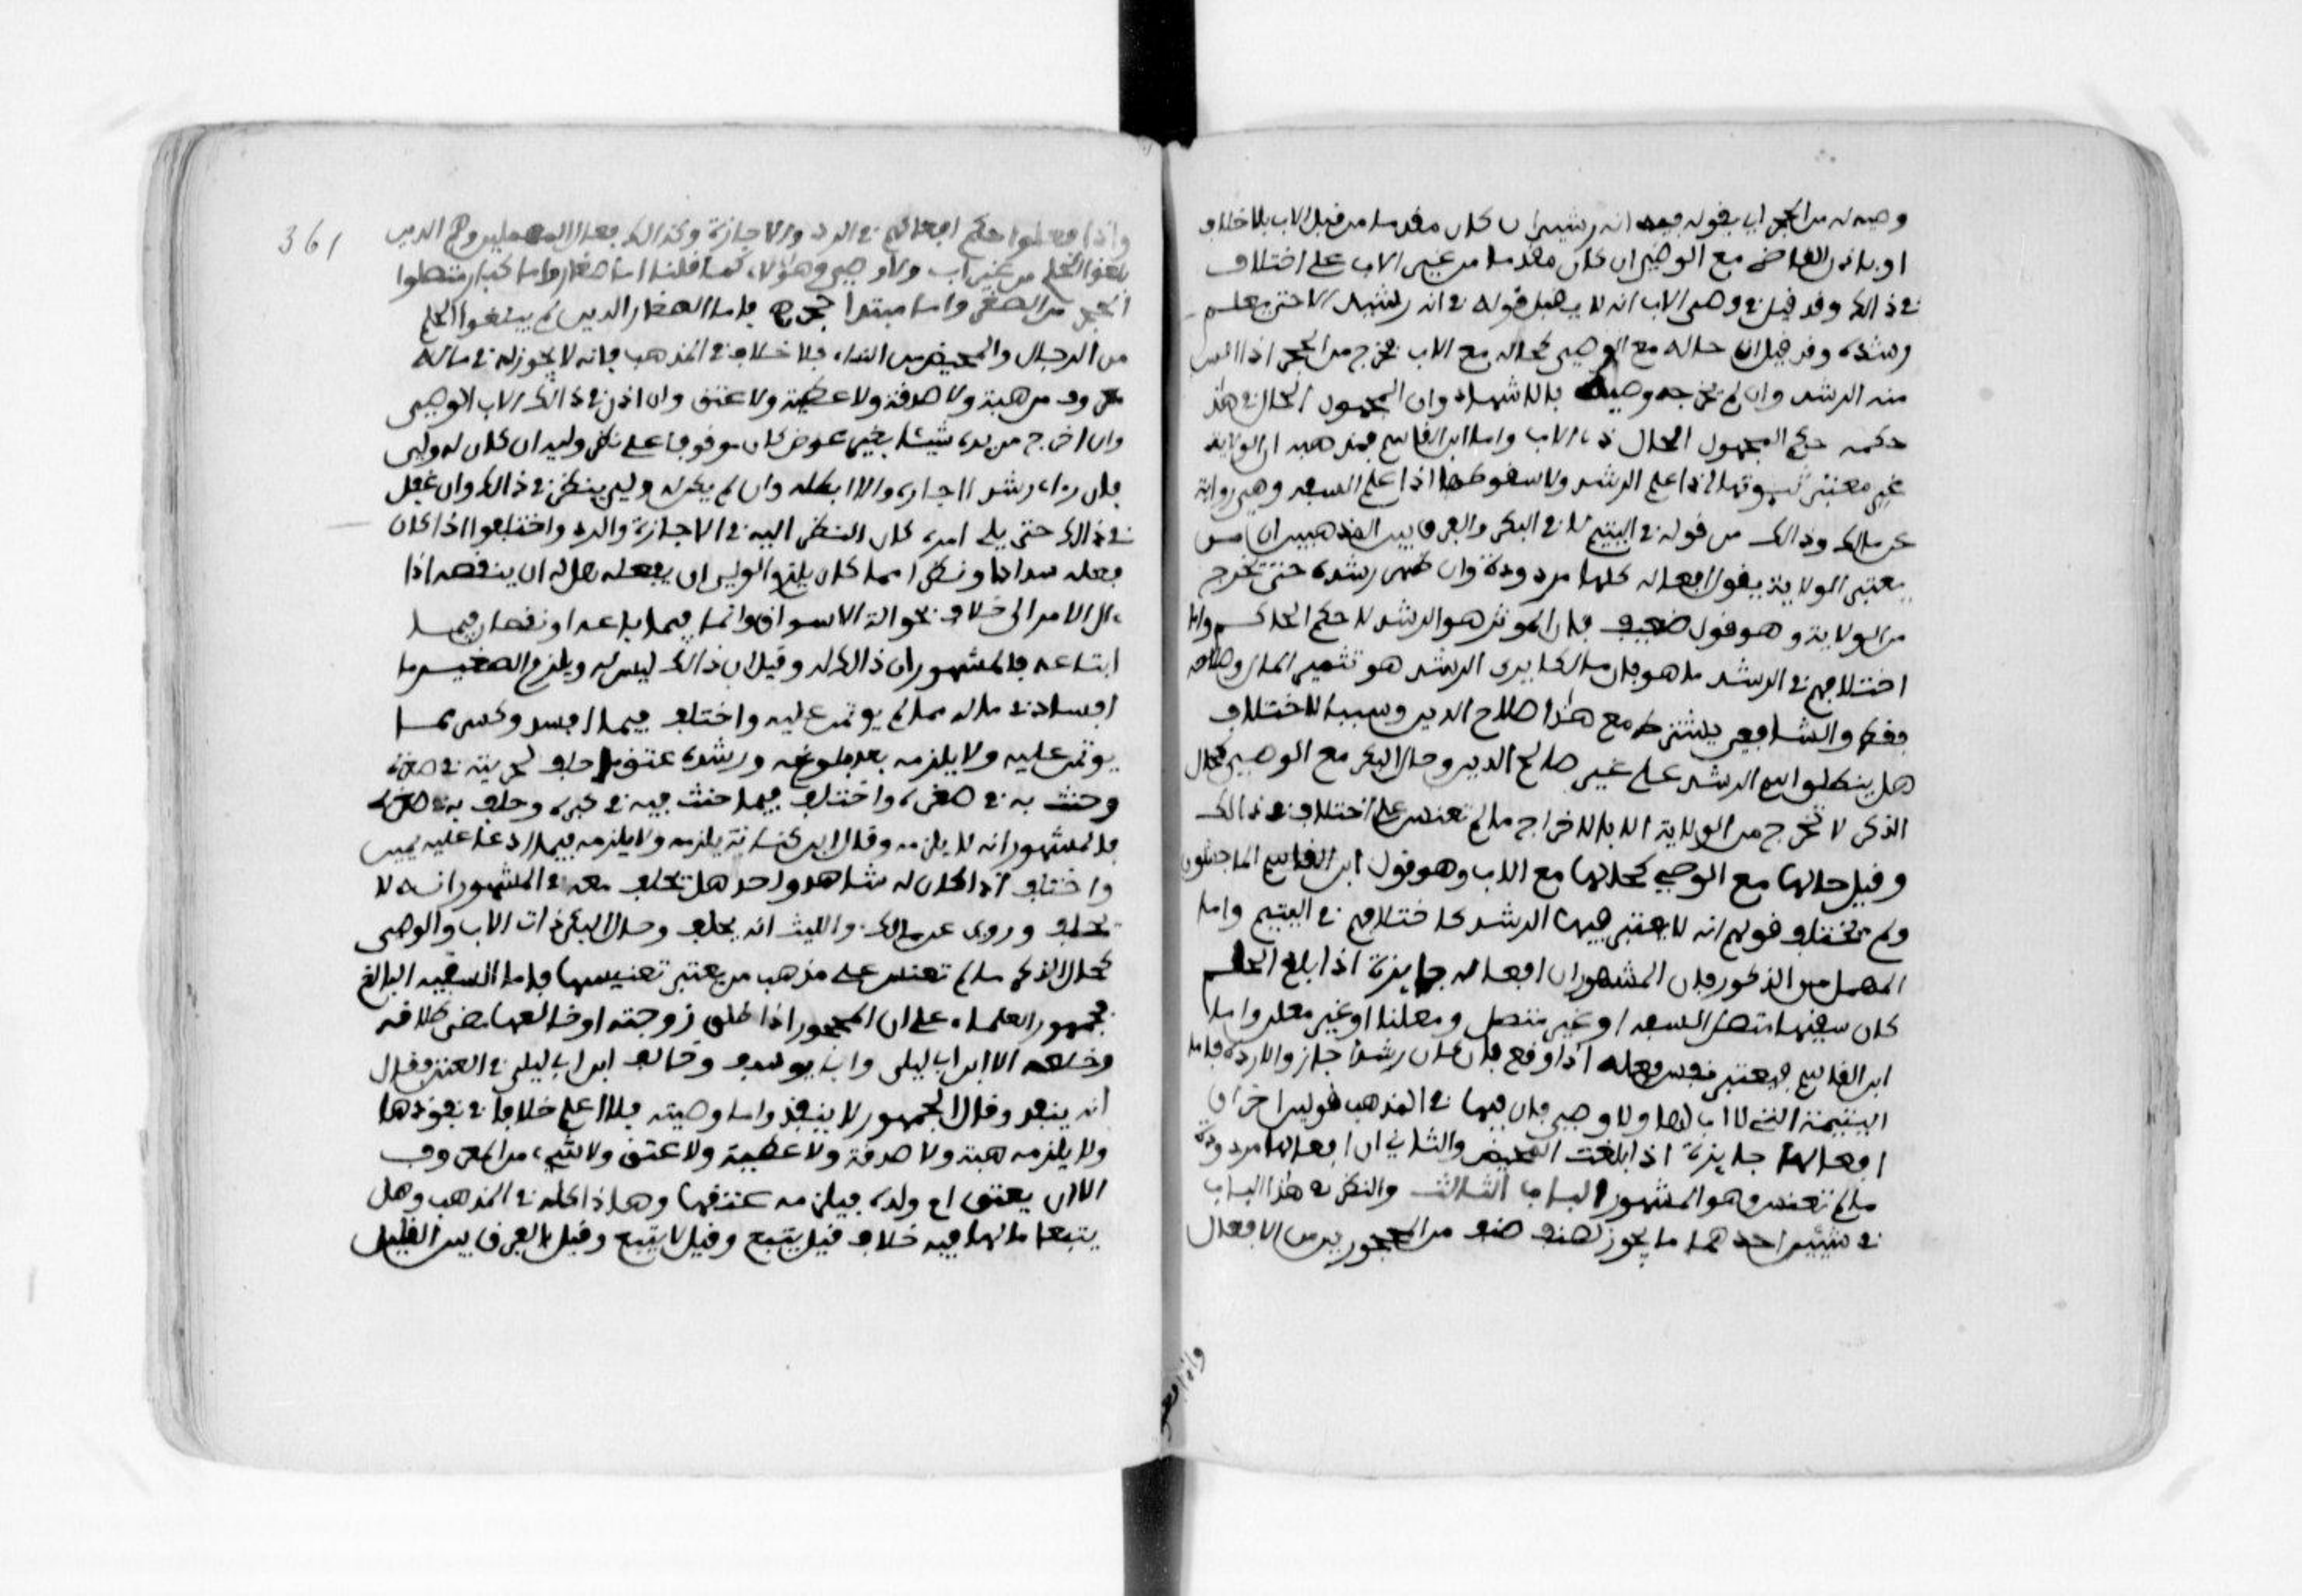 وصيه له من الحجر اي بقوله فيه انه رشيد ان كان مقدما من قبل الاب بلا خلاف
او باذن القاضي مع الوصي ان كان مقدما من غير الاب على اختلاف
في ذالك وقد قيل في وصي الاب انه لا يقبل قوله في انه رشيد الا حتى يعلم
رشده وقد قيل ان حاله مع الوصي كحاله مع الاب يخرج من الحجر اذا انس
منه الرشد وان لم يخرجه وصيه بالاشهاد وان المجهول الحال في هذا
حكمه حكم المجهول الحال ذا الاب واما ابن القاسم فمذهبه ان الولاية
غير معتبر ثبوتها اذا علم الرشد ولا سقوطها اذا علم السفه وهي رواية
عن مالك وذالك من قوله في اليتيم لا في البكر والفرق بين المذهبين ان من
يعتبر الولاية يقول افعاله كلها مردودة وان ظهر رشده حتى يخرج
من الولاية وهو قول ضعيف فان الموثر هو الرشد لا حكم الحاكم واما
اختلافهم في الرشد ما هو فان مالكا يرى الرشد هو تثمير المال واصلاحه
فقط والشافعي يشترط مع هذا صلاح الدين وسبب الاختلاف
هل ينطلق اسم الرشد على غير صالح الدين وحال البكر مع الوصي كحال
الذكر لا تخرج من الولاية الا بالاخراج ما لم تعنس على اختلاف في ذالك
وقيل حالها مع الوصي كحالها مع الاب وهو قول ابن القاسم الماجشون
ولم يختلف قولهم انه لا يعتبر فيها الرشد كاختلافهم في اليتيم واما
المهمل من الذكور فان المشهور ان افعاله جايزة اذا بلغ الحلم
كان سفيها متصل السفه او غير متصل ومعلنا او غير معلن واما
ابن القاسم فيعتبر نفس فعله اذا وقع فان كان رشدا جاز والا رده فاما
اليتيمة التي لا اب لها ولا وصي فان فيها في المذهب قولين احدهما ان
افعالها جايزة اذا بلغت المحيض والثاني ان افعالها مردودة
ما لم تعنس وهو المشهور الباب الثالث والنظر في هذا الباب
في شيئين احدهما ما يجوز لصنف صنف من المحجورين من الافعال
واذا فعلوا
361
واذا فعلوا حكم افعالهم في الرد والاجازة وكذالك فعال المهملين وهم الذين
بلغوا الحلم من غير اب ولا وصي وهؤلاء كما قلنا اما صغار واما كبار متصلوا
الحجر من الصغر واما مبتدا حجرهم فاما الصغار الذين لم يبلغوا الحلم
من الرجال والمحيض من النساء فلا خلاف في المذهب فانه لا يجوز له في ماله
معروف من هبة ولا صدقة ولا عطية ولا عتق وان اذن في ذالك الاب او الوصي
وان اخرج من يده شيئا بغير عوض كان موقوفا على نظر وليه ان كان له ولي
فان راه رشد اجازه والا ابطله وان لم يكن له ولي ينظر في ذالك وان غفل
في ذالك حتى يلي امره كان النظر اليه في الاجازة والرد واختلفوا اذا كان
فعله سدادا ونظرا مما كان يلزم الولي ان يفعله هل له ان ينقضه اذا
ال الامر الى خلاف بحوالة الاسواق وانما فيما باعه او نقصان فيما
ابتاعه فالمشهور ان ذالك له وقيل ان ذالك ليس له ويلزم الصغير ما
افساد في ماله مما لم يوتمن عليه واختلف فيما افسد وكسر مما
يوتمن عليه ولا يلزمه بعد بلوغه ورشده عتق ما حلف بحريته في صغره
وحنث به في صغره واختلف فيما حنث فيه في كبره وحلف به في صغره
فالمشهور انه لا يلزمه وقال ابن كنانة يلزمه ولا يلزمه فيما ادعا عليه يمين
واختلف اذا كان له شاهد واحد هل يحلف معه فالمشهور انه لا
يحلف وروى عن مالك والليث انه يحلف وحال البكر ذات الاب والوصي
كحال الذكر ما لم تعنس على مذهب من يعتبر تعنيسها فاما السفيه البالغ
فجمهور العلماء على ان المحجور اذا طلق زوجته او خالعها مضى طلاقه
وخلعه الا ابن ابي ليلى وابا يوسف وخالف ابن ابي ليلى في العتق فقال
انه ينفذ وقال الجمهور لا ينفذ واما وصيته فلا اعلم خلافا في نفوذها
ولا يلزمه هبة ولا صدقة ولا عطية ولا عتق ولا شيء من المعروف
الا ان يعتق ام ولده فيلزمه عتقها وهذا كله في المذهب وهل
يتبعها مالها فيه خلاف قيل يتبع وقيل لا يتبع وقيل بالفرق بين القليل